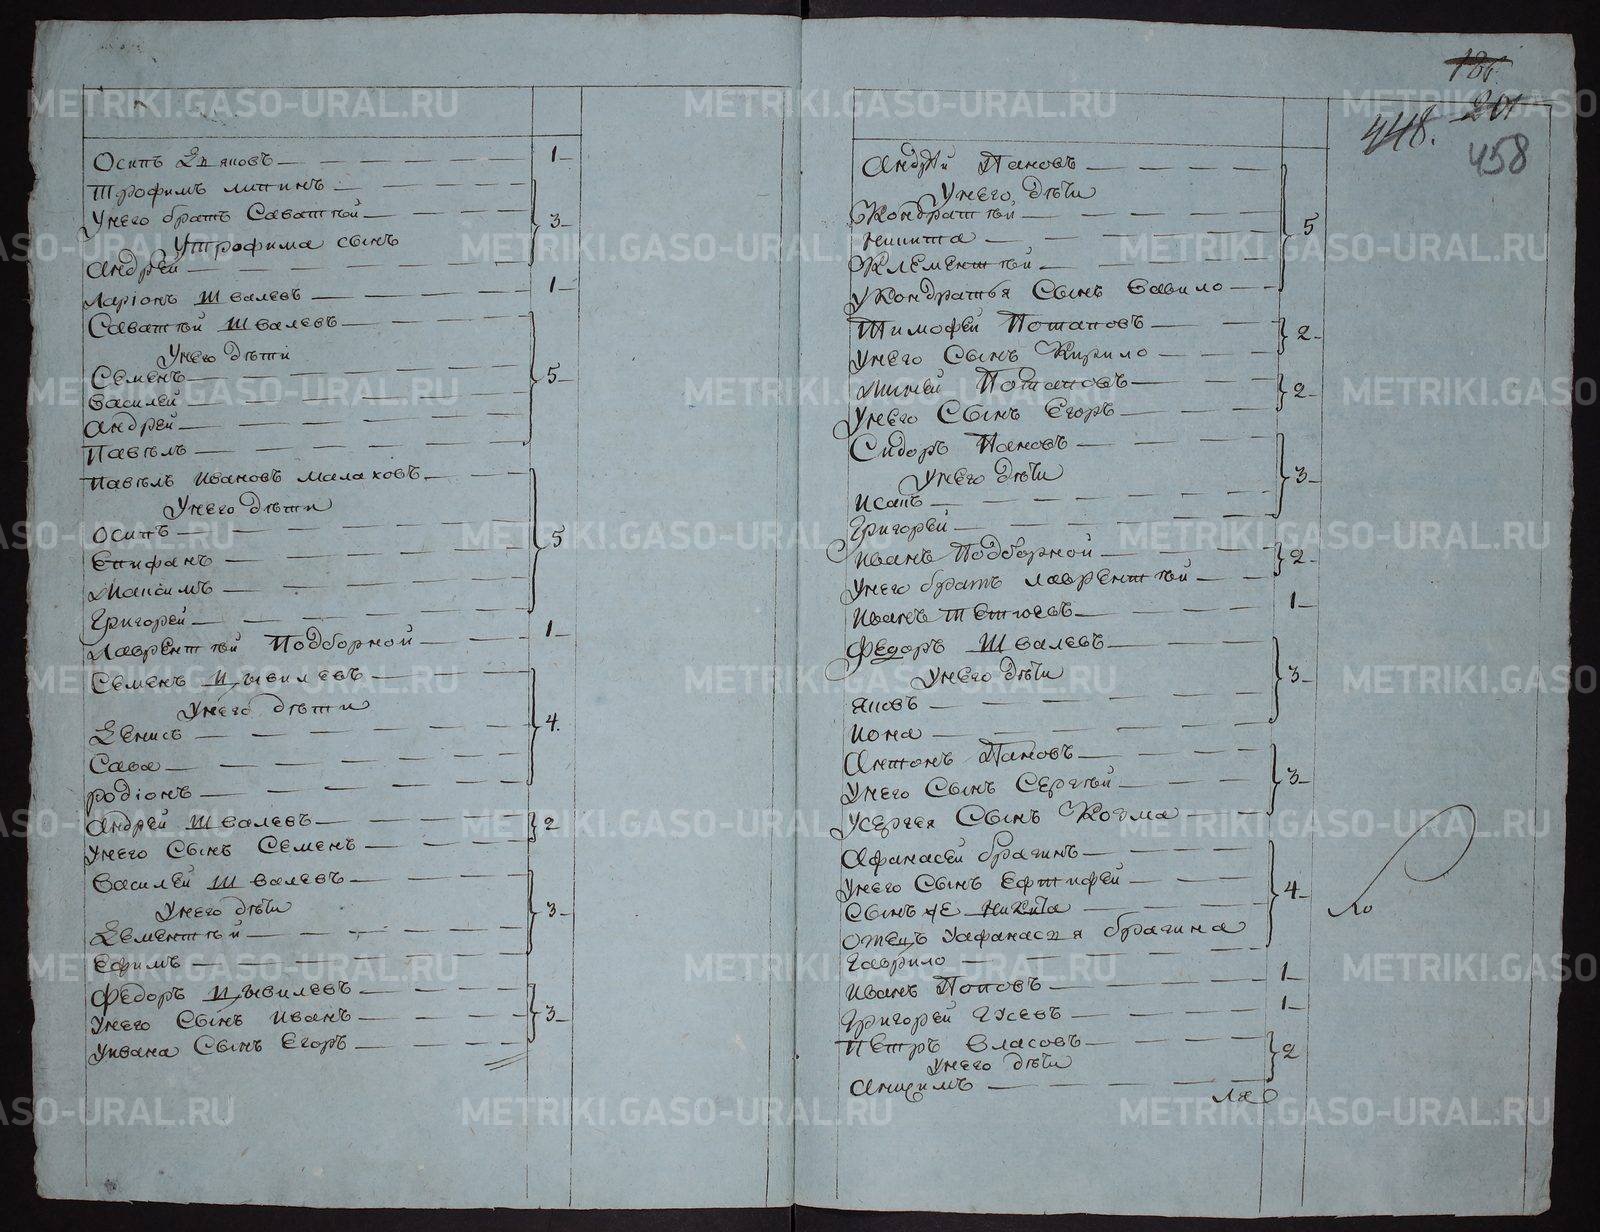 Осипъ
1
Трофимъ липинъ
Унего братъ Саватѣй
3
Утрофима сынъ
андрей
Ларіонъ Швалевъ
1
Саватѣй Швалевъ
Унего дѣти
Семенъ
5
василей
андрей
Павелъ
павелъ ивановъ малаховъ
Унего дѣти
осипъ
5
Епифанъ
Максимъ
Григорей
Лаврентѣй Подборной
1
Семенъ Цывилевъ
Унего дѣти
Денисъ
4.
Сава
родіонъ
андрей Швалевъ
2
Унего Сынъ Семенъ
василей Швалевъ
Унего дѣти
3
Дементѣй
Ефимъ
Федоръ Цывилевъ
Унего Сынъ иванъ
3
Уивана Сынъ Егоръ
201
448.
458
андрей Пановъ
Унего дѣти
Кондратѣй
5
никита
Клементѣй
УКондратья Сынъ вавило
Тимофей Потаповъ
2
Унего Сынъ Кирило
Михей Потаповъ
2
Унего Сынъ Егоръ
Сидоръ Пановъ
Унего дѣти
3
исакъ
Григорей
иванъ Подборной
2
Унего братъ лаврентѣй
иванъ
1
Федоръ Швалевъ
Унего дѣти
3
яковъ
иона
антонъ Пановъ
Унего Сынъ Сергѣй
3
Усергея Сынъ Козма
афанасей брагинъ
Унего Сынъ Ефтифей
4
Сынъ же никита
отецъ Уафанасия брагина
Гаврило
иванъ Поповъ
1
Григорей Гусевъ
1
петръ власовъ
Унего дѣти
2
акимъ
METRIKI.GASO-URAL.RU